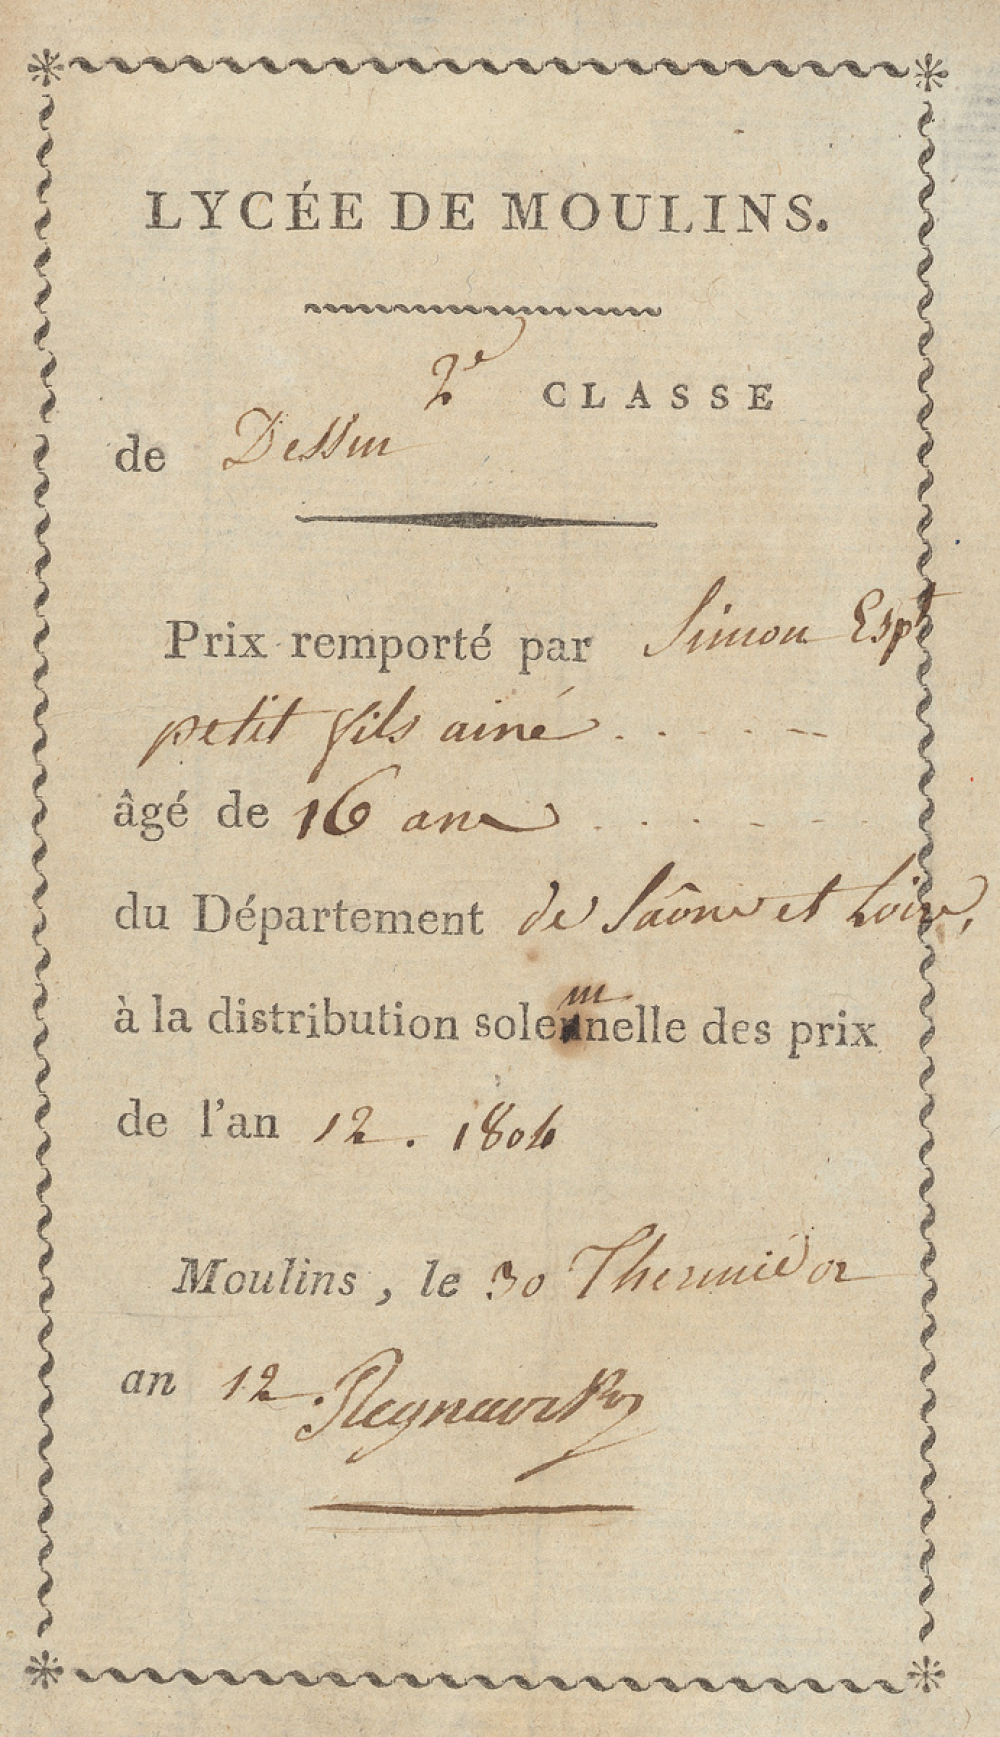 LYCÉE DE MOULINS.
2e CLASSE
de Dessin
Prix remporté par Simon Espt
petit fils ainé . . . . .
âgé de 16 ans . . . . . .
du Département de Saône et Loire,
à la distribution solemnelle des prix
de l'an 12 . 1804
Moulins, le 30 Thermidor
an 12.